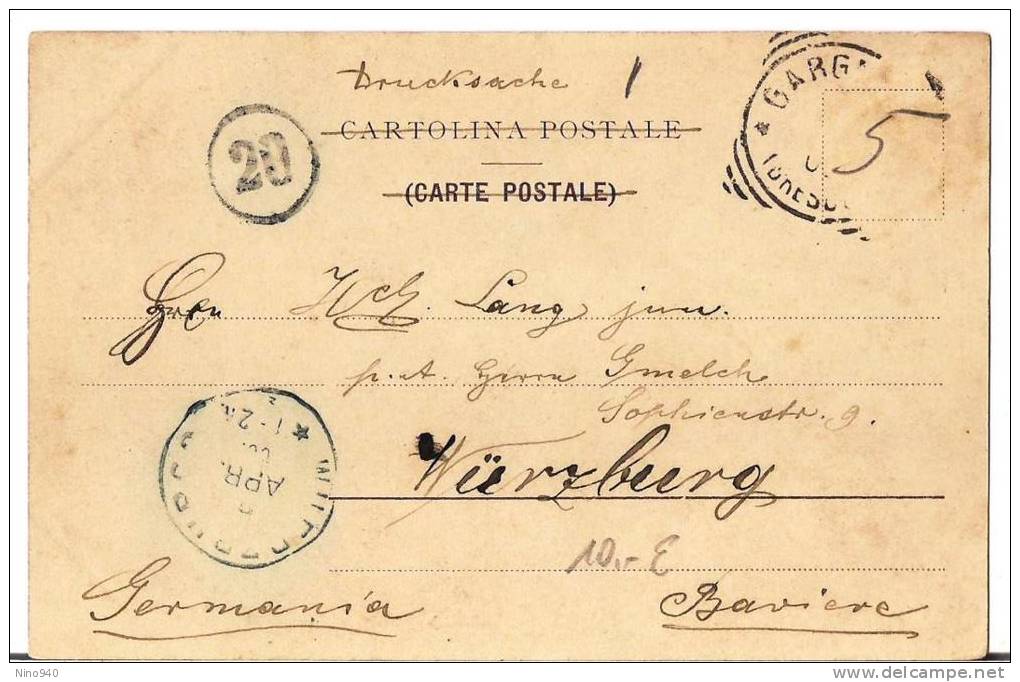 Drucksache
CARTOLINA POSTALE
(CARTE POSTALE)
20
5
Herrn Hch. Lang jun.
p. A. Herrn Gmelch
Sophienstr. 9.
APR.
Würzburg
10,- E
Germania
Baviere
Nino940
delcampe.net